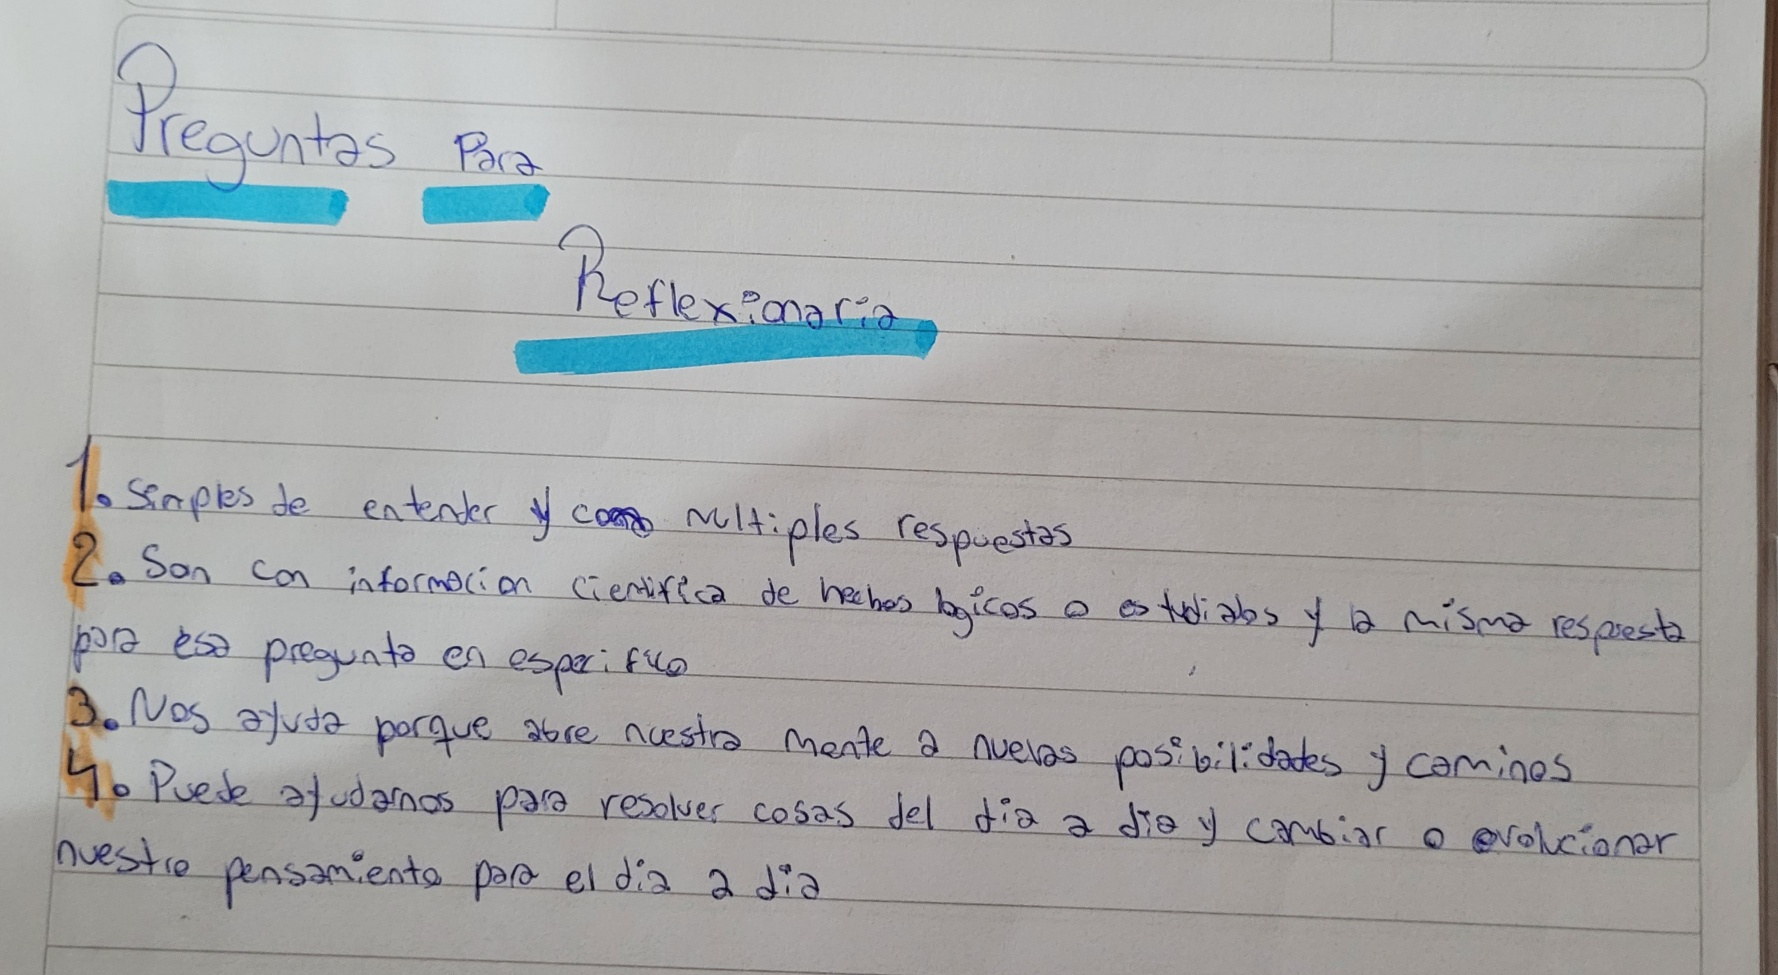 Preguntas Para
Reflexionaria
1. Simples de entender y como multiples respuestas
2. Son con informacion cientifica de hechos logicos o estudiabs y la misma respuesta
para esa pregunta en especifico
3. Nos ayuda porque abre nuestra mente a nuevas posibilidades y caminos
4. Puede ayudarnos para resolver cosas del dia a dia y cambiar o evolucionar
nuestro pensamiento para el dia a dia